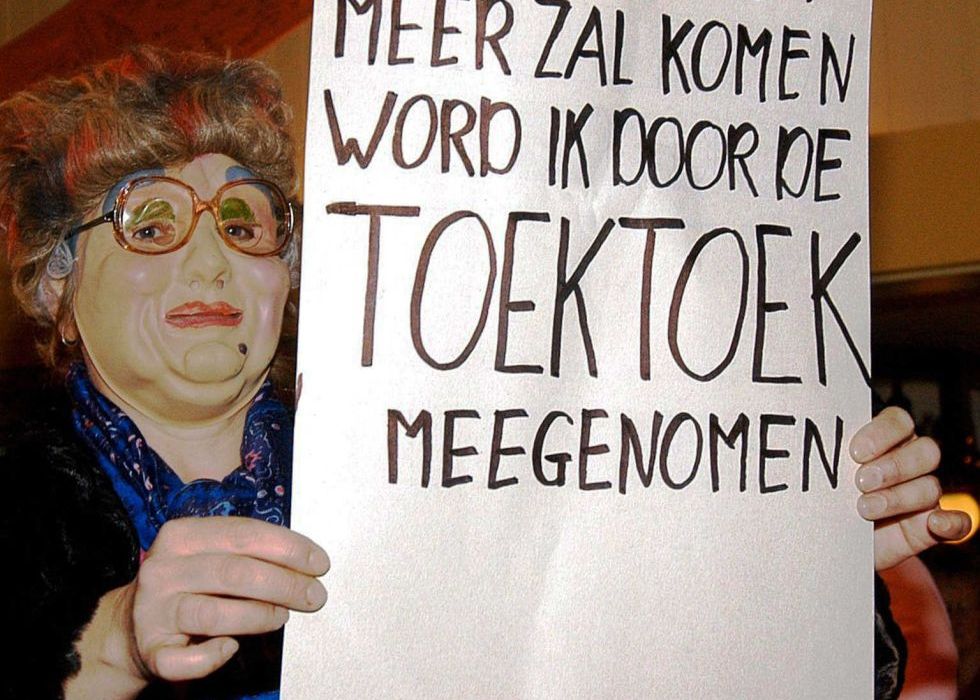 MEER ZAL KOMEN
WORD IK DOOR DE
TOEKTOEK
MEEGENOMEN